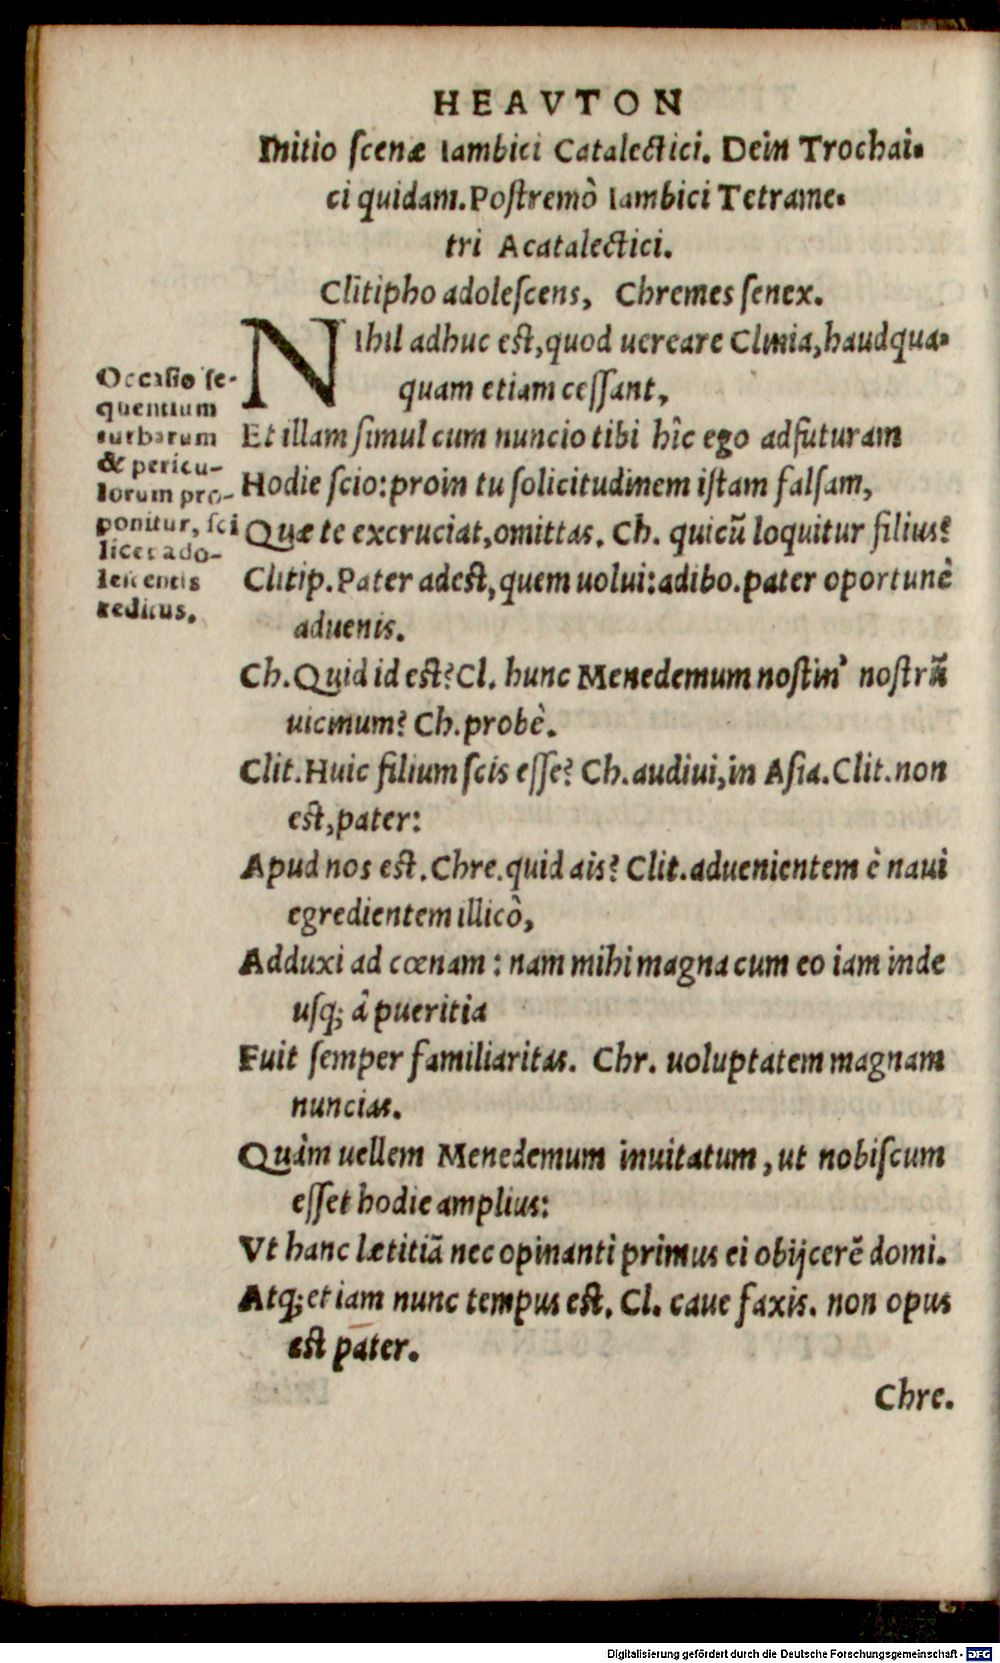 HEAVTON
Initio scenæ Iambici Catalectici. Dein Trochai-
ci quidam. Postremò Iambici Tetrame-
tri Acatalectici.
Clitipho adolescens, Chremes senex.
NIhil adhuc est, quod uereare Clinia, haudqua-
quam etiam cessant,
Et illam simul cum nuncio tibi hîc ego adfuturam
Hodie scio: proin tu solicitudinem istam falsam,
Quæ te excruciat, omittas. Ch. quicũ loquitur filius?
Clitip. Pater adest, quem uolui: adibo. pater oportunè
aduenis.
Ch. Quid id est? Cl. hunc Menedemum nostin' nostrũ
uicinum? Ch. probè.
Clit. Huic filium scis esse? Ch. audiui, in Asia. Clit. non
est, pater:
Apud nos est. Chre. quid ais? Clit. aduenientem è naui
egredientem illicò,
Adduxi ad cœnam: nam mihi magna cum eo iam inde
usq; â pueritia
Fuit semper familiaritas. Chr. uoluptatem magnam
nuncias.
Quàm uellem Menedemum inuitatum, ut nobiscum
esset hodie amplius:
Vt hanc lætitiã nec opinanti primus ei obijcerẽ domi.
Atq; etiam nunc tempus est. Cl. caue faxis. non opus
est pater.
Chre.
Occasio se-
quentium
turbarum
& pericu-
lorum pro-
ponitur, sci
licet ado-
lescentis
reditus.
Digitalisierung gefördert durch die Deutsche Forschungsgemeinschaft - DFG